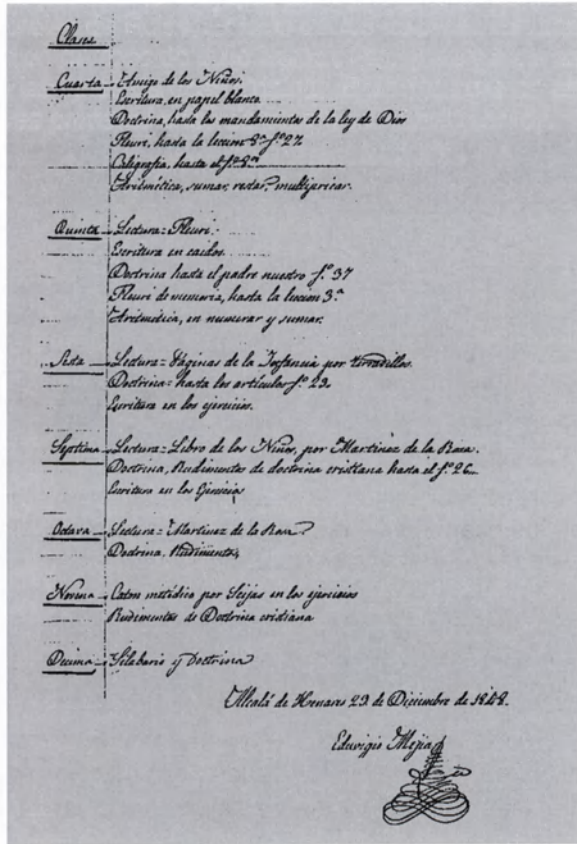 Clases
Cuarta Amigo de los Niños.
Escritura, en papel blanco
Doctrina, hasta los mandamientos de la ley de Dios
Fleuri, hasta la leccion 8ª fº 27
Caligrafia, hasta el fº 8º
Aritmética, sumar, restar, multiplicar.
Quinta Lectura = Fleuri.
Escritura en caidos
Doctrina hasta el padre nuestro fº 37
Fleuri de memoria, hasta la leccion 3.ª
Aritmética, en numerar y sumar.
Sesta Lectura = Páginas de la Infancia por Terradillos
Doctrina = hasta los artículos fº 23.
Escritura en los ejercicios.
Septima Lectura = Libro de los Niños, por Martinez de la Rosa.
Doctrina, Rudimentos de doctrina cristiana hasta el fº 26
Escritura en los Ejercicios
Octava Lectura = Martinez de la Rosa
Doctrina, Rudimentos,
Novena Caton metódico por Seijas en los ejercicios
Rudimentos de Doctrina cristiana
Decima Silabario y Doctrina
Alcalá de Henares 29 de Diciembre de 1848.
Eduvigis Mejia